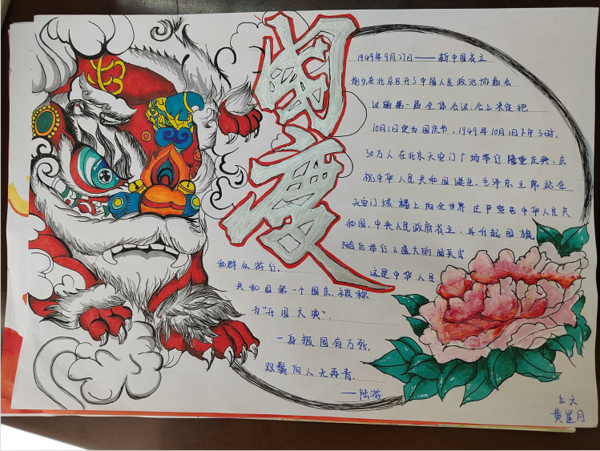 国庆
1949年9月21日——新中国成立
前夕在北京召开了中国人民政治协商会
议的第一届全体会议,会上决定把
10月1日定为国庆节,1949年10月1日下午3时,
30万人在北京天安门广场举行隆重庆典,庆
祝中华人民共和国诞生,毛泽东主席站在
天安门城楼上向全世界庄严宣告中华人民共
和国、中央人民政府成立,并升起国旗
随后举行了盛大的阅兵式
和群众游行,
这是中华人民
共和国第一个国庆,被称
为“开国大典”.
一身报国有万死,
双鬓向人无再青.
——陆游
五六
黄星月